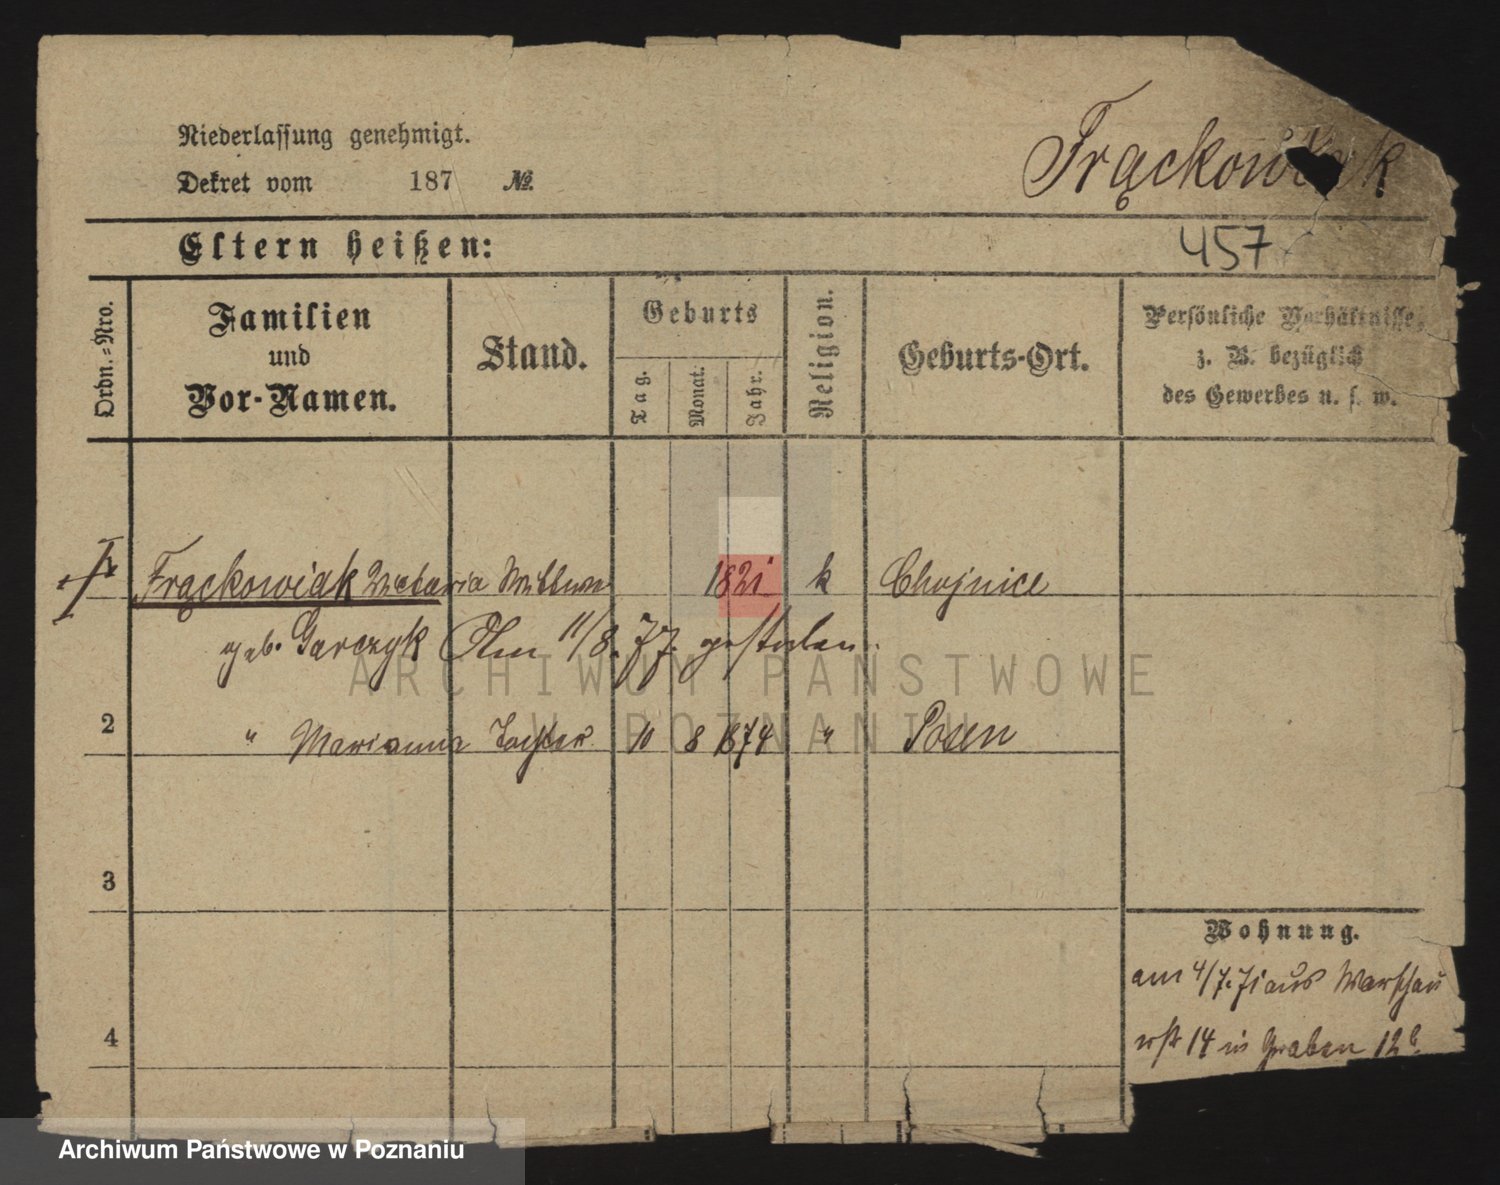 Niederlassung genehmigt.
Dekret vom 187 №.
Frąckowiak
457
Eltern heißen:
Ordn.-Nro.
Familien und Vor-Namen.
Stand.
Geburts
Tag.
Monat.
Jahr.
Religion.
Geburts-Ort.
Persönliche Verhältnisse,
z. B. bezüglich
des Gewerbes u. s. w.
Frąckowiak Victoria Wittwe 1821 k Chojnice
geb. Garczyk Am 11/8. 77. gestorben.
2 " Marianna Tochter 10 8 1874 " Posen
3
Wohnung.
am 4/7. 71 aus Warschau
4
14 in Graben 12b.
ARCHIWUM PAŃSTWOWE
W POZNANIU
Archiwum Państwowe w Poznaniu